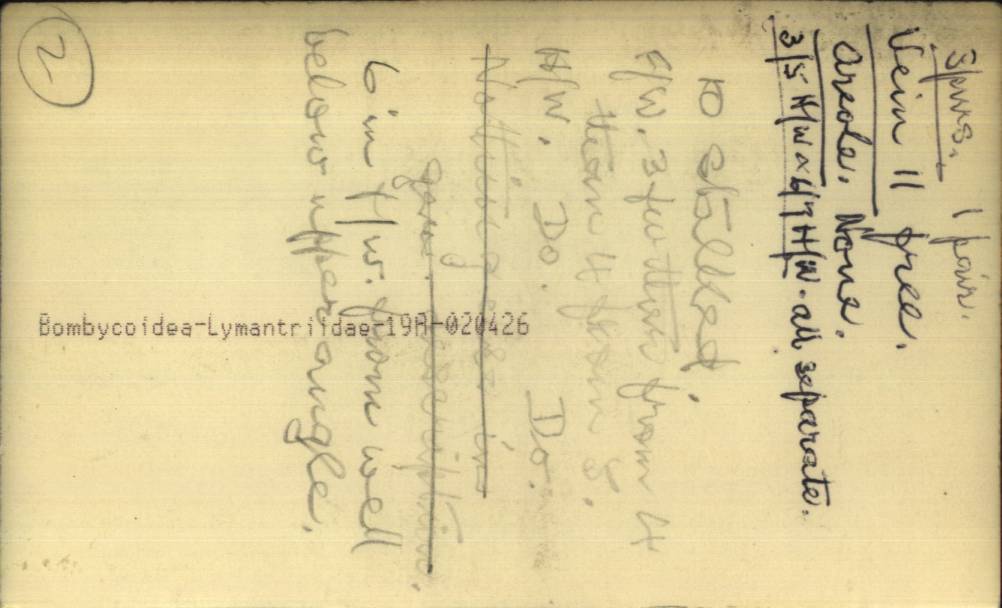 Spurs. 1 pair.
Vein 11 free.
Areole. None.
3/5 H/W & 6/7 H/W - all separate.
10 stalked.
F/W. 3 further from 4
than 4 from 5.
H/W. Do. Do.
Nothing else in
gen. description.
6 in H/W. from well
below upper angle.
2
Bombycoidea-Lymantriidae-19A-020426